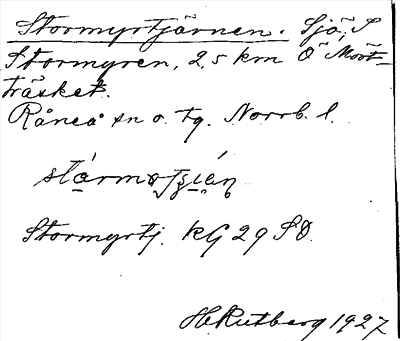 Stormyrtjärnen. Sjö, S
Stormyren, 2,5 km Ö Moot-
träsket.
Råneå sn o. tg. Norrb. l.
Stormyrtj. KG 29 SD.
H. Rutberg 1927